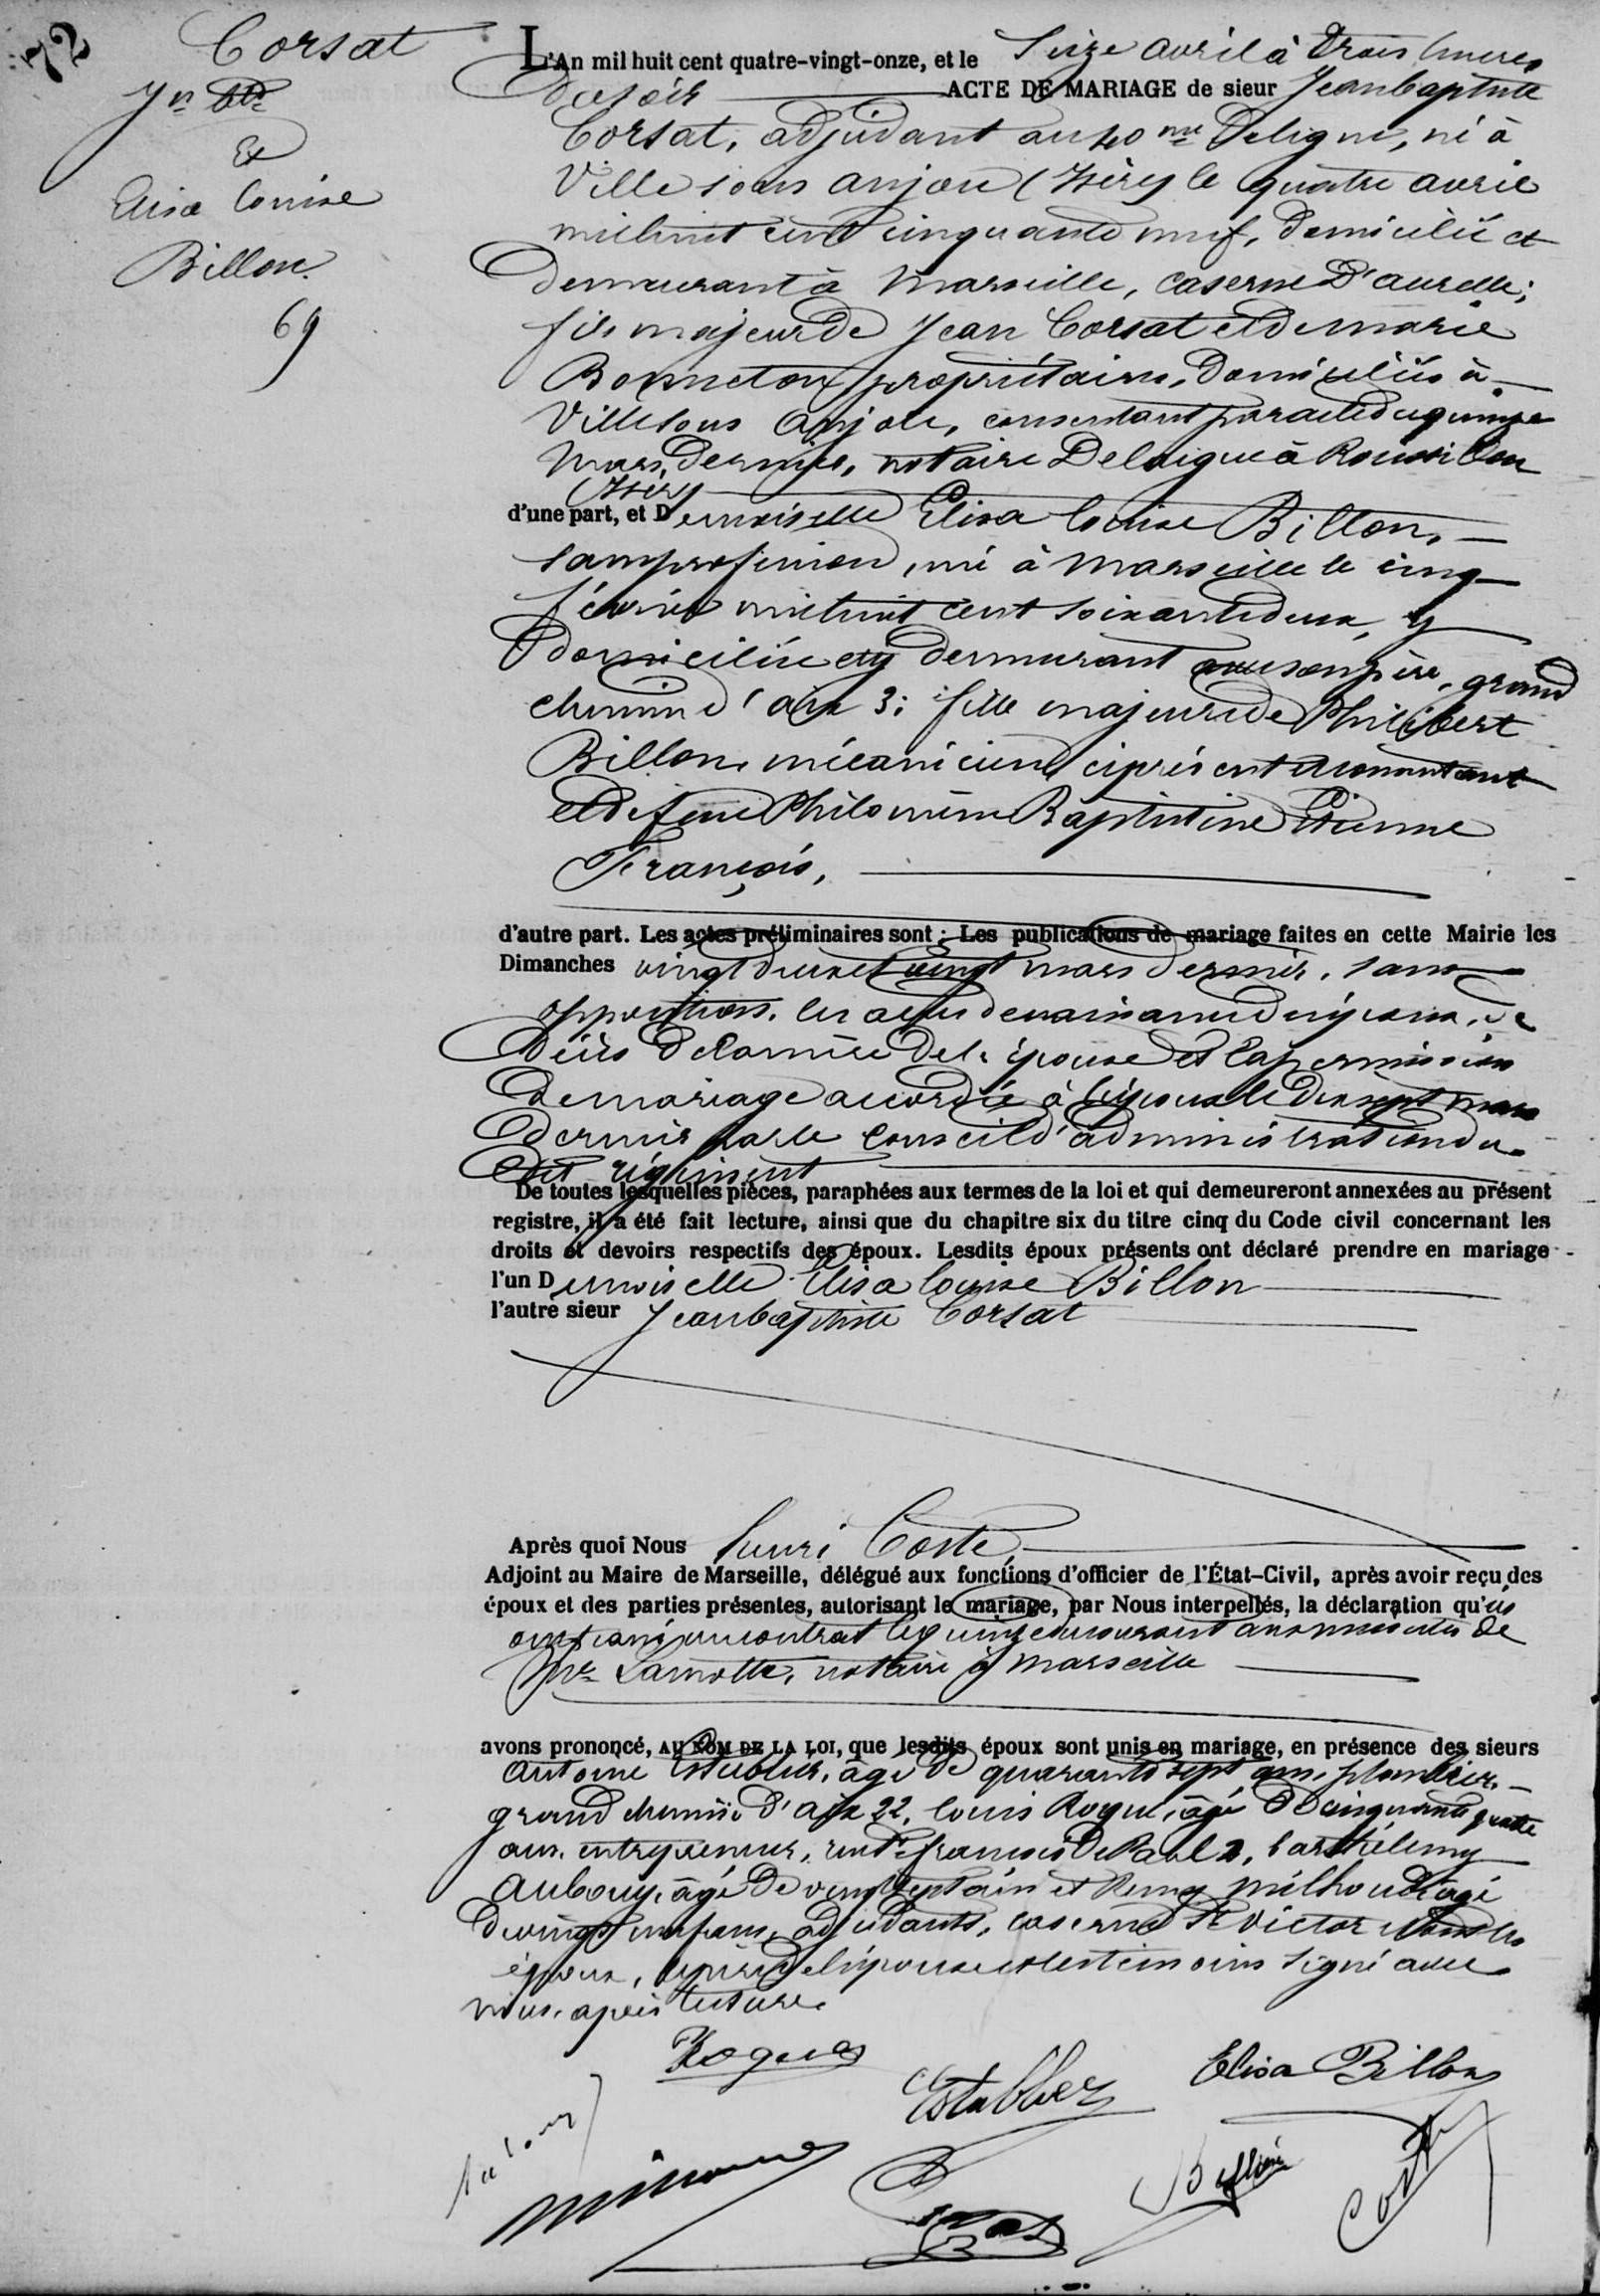 72
Corsat
Jn Bte
Et
Elisa Louise
Billon.
69
L'An mil huit cent quatre-vingt-onze, et le Seize avril à trois heures
du soir ACTE DE MARIAGE de sieur Jean baptiste
Corsat, adjudant au 40me De ligne, né à
Ville sous anjou (Isère) le quatre avril
mil huit cent cinquante neuf, domicilié et
demeurant à Marseille, caserne D'aurelle;
fils majeur de Jean Corsat et de marie
Bonneton propriétaires, domiciliés à
Ville sous Anjou, consentant par acte du quinze
Mars dernier, notaire Delaigue à Roussillon
(Isère)
d'une part, et Demoiselle Elisa Louise Billon,
sans profession, née à Marseille le cinq
février mil huit cent soixante deux, y
domiciliée et y demeurant avec son père, grand
chemin d'aix 3; fille majeure de Philibert
Billon, mécanicien, ci présent et consentant
et de feue Philomène Baptistine Etienne
François,
d'autre part. Les actes préliminaires sont: Les publications de mariage faites en cette Mairie les
Dimanches vingt deux et vingt mars dernier, sans
opposition. les actes de naissance des époux, de
décès de la mère de l'épouse et la permission
de mariage accordée à l'époux le dix sept mars
dernier par le conseil d'administration du
dit régiment
De toutes lesquelles pièces, paraphées aux termes de la loi et qui demeureront annexées au présent
registre, il a été fait lecture, ainsi que du chapitre six du titre cinq du Code civil concernant les
droits et devoirs respectifs des époux. Lesdits époux présents ont déclaré prendre en mariage
l'un Demoiselle Elisa Louise Billon
l'autre sieur Jean baptiste Corsat
Après quoi Nous Henri Coste,
Adjoint au Maire de Marseille, délégué aux fonctions d'officier de l'État-Civil, après avoir reçu des
époux et des parties présentes, autorisant le mariage, par Nous interpellés, la déclaration qu'ils
ont passé un contrat le quinze du courant aux minutes de
Me Lamotte, notaire à Marseille
avons prononcé, AU NOM DE LA LOI, que lesdits époux sont unis en mariage, en présence des sieurs
Antoine Establier, âgé de quarante sept ans, plombier,
grand chemin d'aix 22, Louis Roque, âgé de cinquante quatre
ans, entrepreneur, rue St françois De Paul 2, barthélemy
Aubouy, âgé de vingt sept ans et Remy Milhoud âgé
de vingt neuf ans, adjudants, caserne St Victor
époux, le père de l'épouse et les témoins signé avec
nous, après lecture.
Roques
Establier
Elisa Billon
Corsat
Billon
Coste